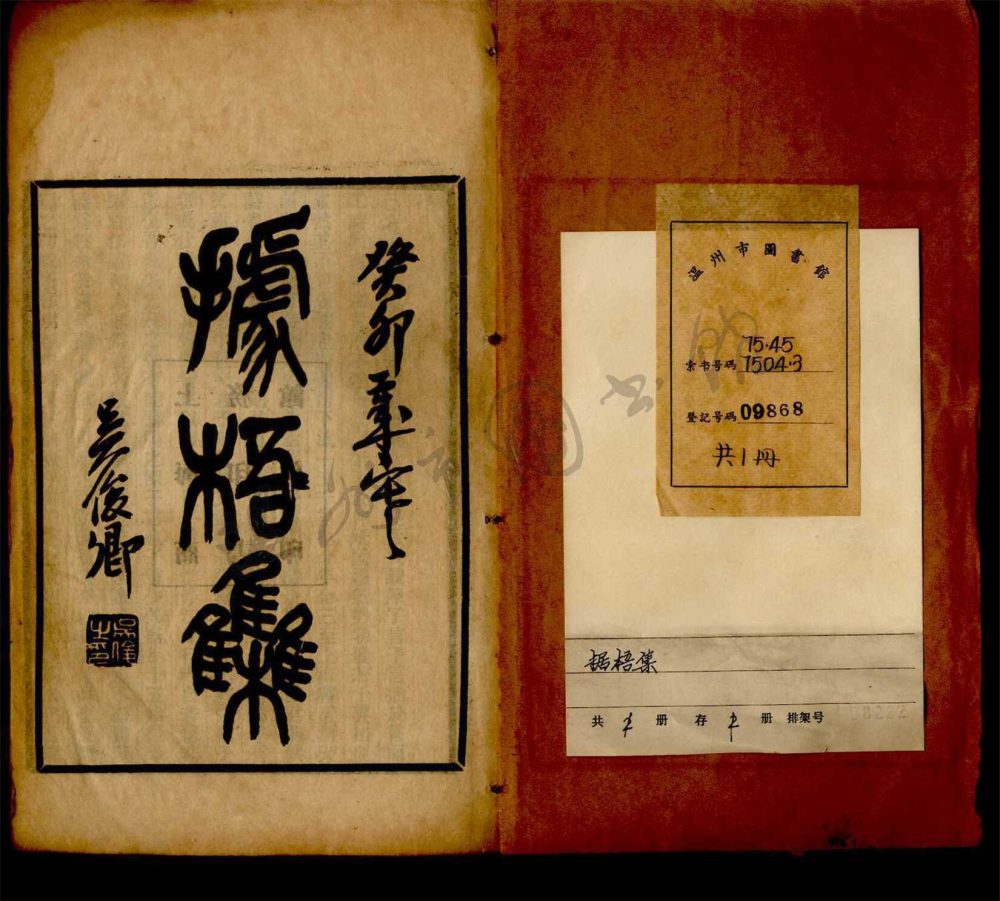 溫州市圖書館
75.45
索书号碼 7504.3
登記号碼 09868
共1冊
据梧集
共 1 册 存 1 册 排架号
癸卯
據梧集
吳俊卿